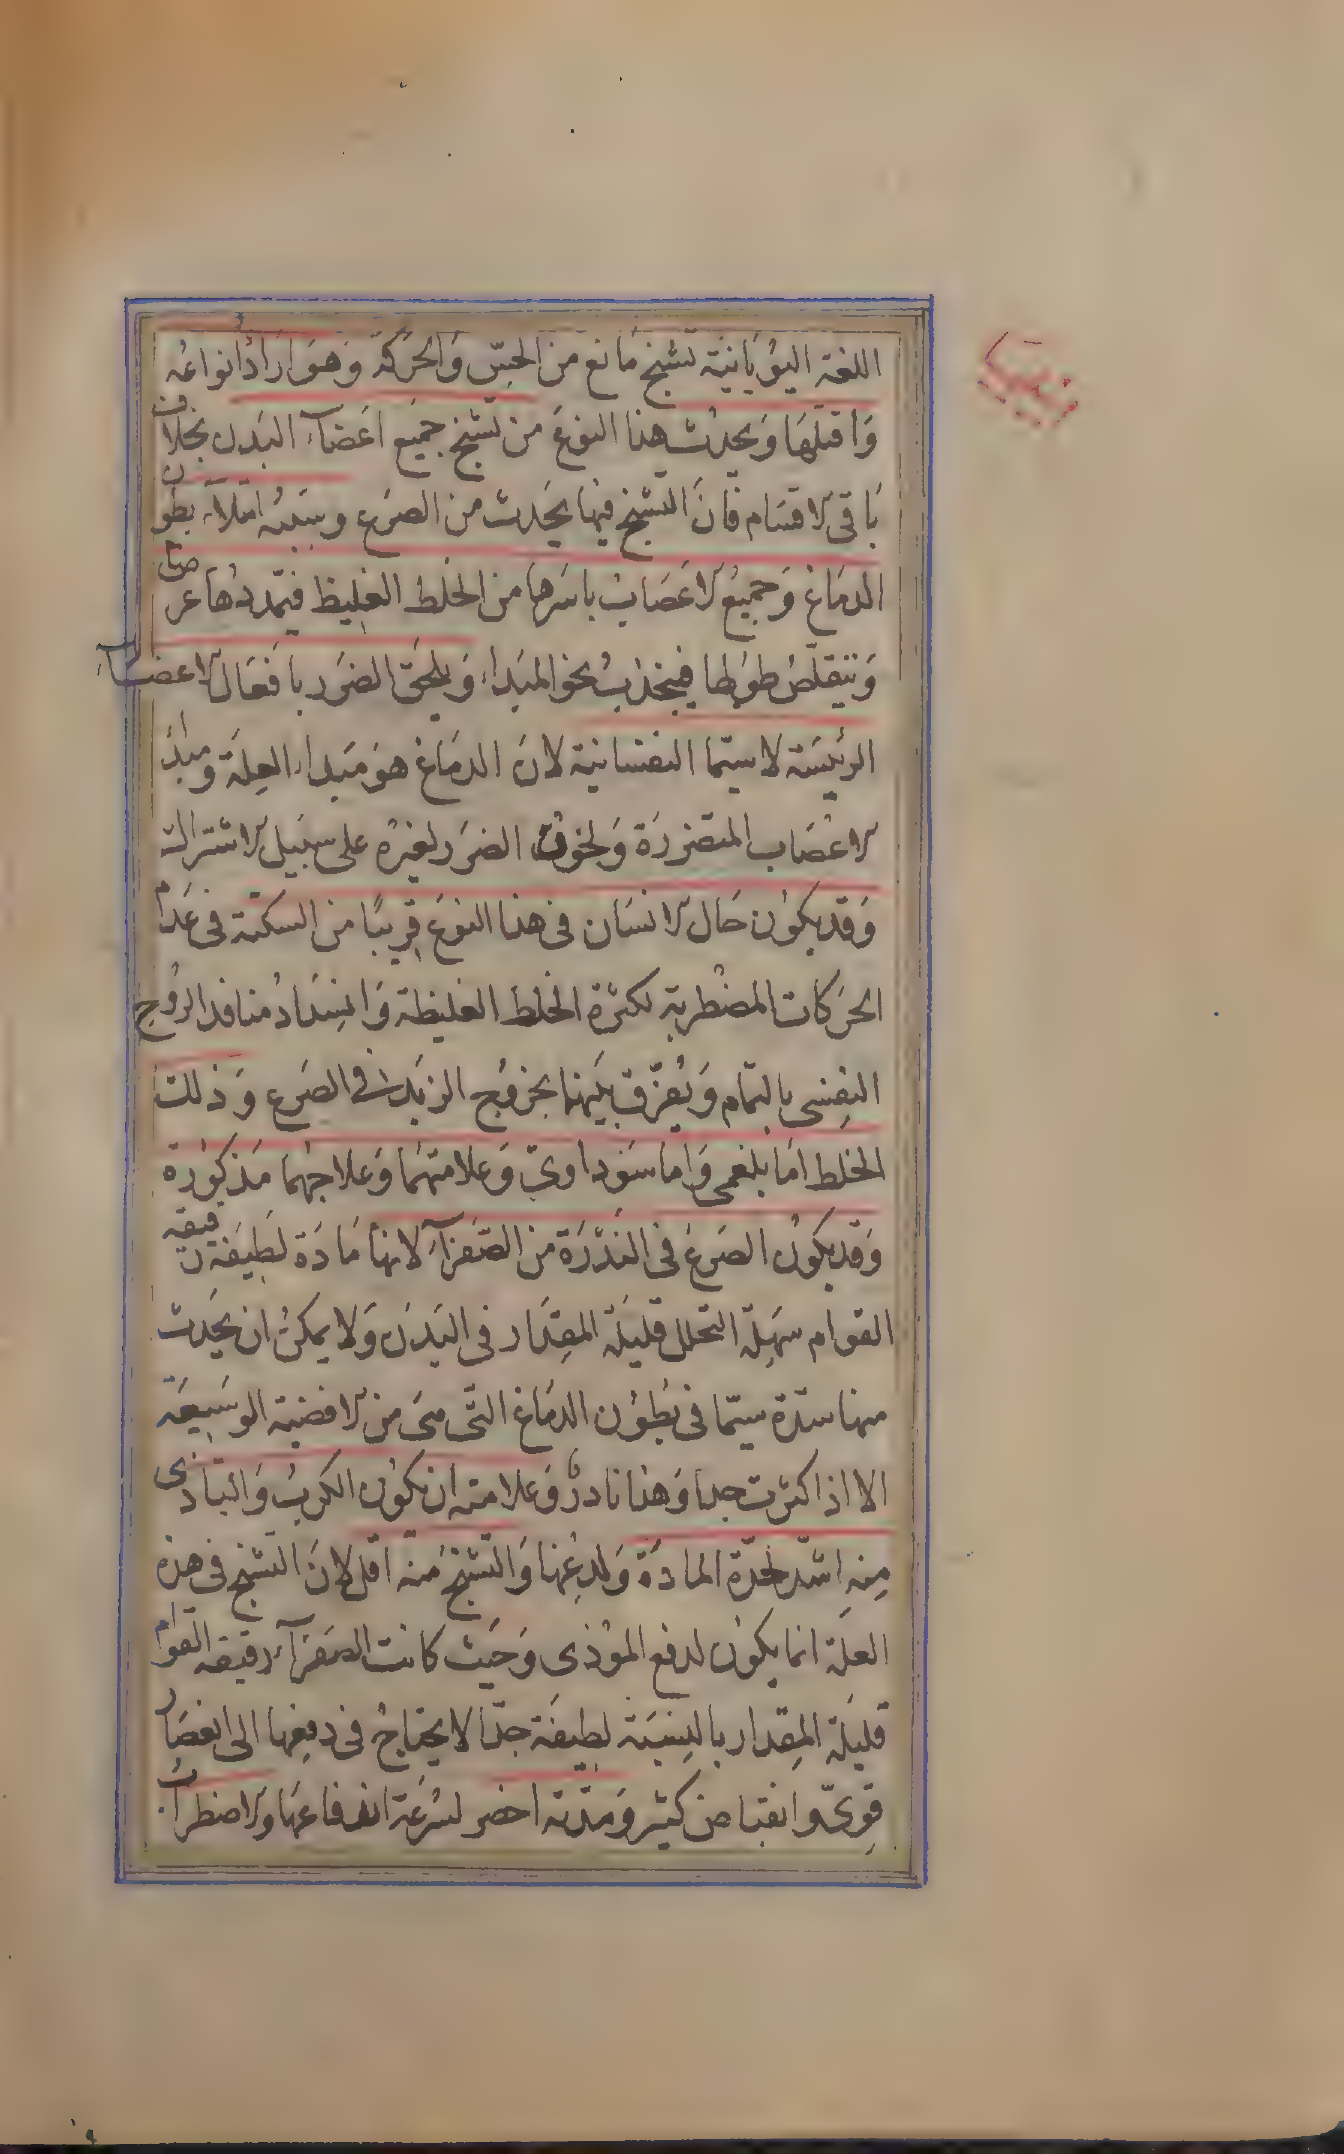 اللغة اليونانية تشنج مانع من الحس والحركة وهو اراد انواعه
واقتلها ويحدث هذا النوع من تشنج جميع اعضاء البدن بخلاف
باقى الاقسام فان التشنج فيها يحدث من الصرع وسببه امتلاء بطون
الدماغ وجميع الاعصاب باسرها من الخلط الغليظ فيمددها عرضا
وتتقلص طولها فينجذب نحو المبداء ويلحق الضرر بافعال الاعضاء
الرئيسة لا سيما النفسانية لان الدماغ هو مبداء العلة ومبدء
الاعصاب المتضررة ولحوق الضرر لغيره على سبيل الاشتراك
وقد يكون حال الانسان فى هذا النوع قريبا من السكتة فى عدم
الحركات المضطربة لكثرة الخلط الغليظة وانسداد منافد الروح
النفسى بالتمام ويفرق بينهما بخروج الزبد فى الصرع وذلك
الخلط اما بلغمى واما سوداوى وعلامتهما وعلاجهما مذكورة
وقد يكون الصرع فى الندرة من الصفراء لانها مادة لطيفة رقيقة
القوام سهلة التحلل قليلة المقدار فى البدن ولا يمكن ان يحدث
منها سدة سيما فى بطون الدماغ التى هى من الافضية الوسيعة
الا اذا كثرت جدا وهذا نادر وعلامته ان تكون الكرب والتاذى
منه اشد لحدة المادة ولدغها والتشنج منه اقل لان التشنج فى هذه
العلة انما يكون لدفع الموذى وحيث كانت الصفراء رقيقة القوام
قليلة المقدار بالنسبة لطيفة جدا لا يحتاج فى دفعها الى انعصار
قوى وانقباض كثير ومدته اخصر لسرعة اندفاعها والاضطراب